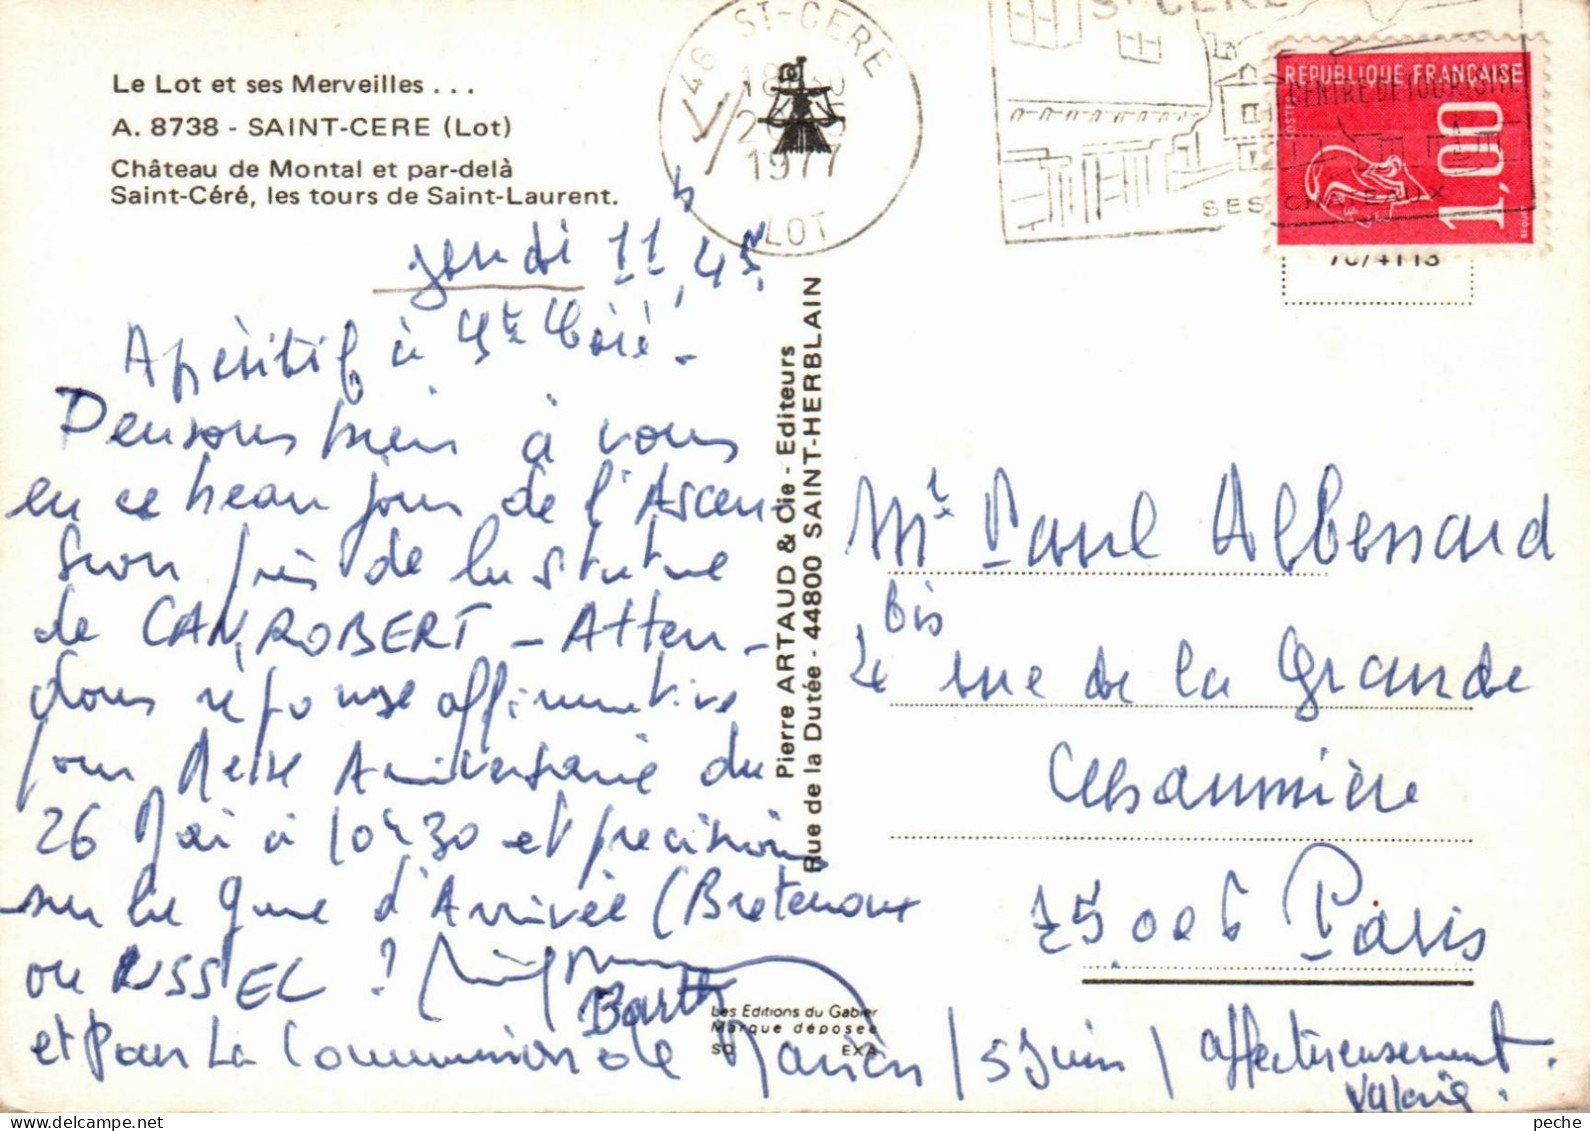 Le Lot et ses Merveilles . . .
A. 8738 - SAINT-CERE (Lot)
Château de Montal et par-delà
Saint-Céré, les tours de Saint-Laurent.
46 ST-CERE
1977
LOT
ST CERE
CENTRE DE TOURISME
SES CHATEAUX
REPUBLIQUE FRANÇAISE
POSTES
1,00
jeudi 11h,45.
Apéritif à St Céré -
Pensons bien à vous
en ce beau jour de l'Ascen-
sion près de la statue
de CANROBERT - Atten-
dons réponse affirmative
pour Messe Aniversaire du
26 Mai à 10h30 et précisions
sur la gare d'Arrivée (Bretenoux
ou RUSSEL ?
Barth
et pour La Communion de / 5 Juin / affectueusement.
Valérie.
Pierre ARTAUD & Cie - Editeurs
Rue de la Dutée - 44800 SAINT-HERBLAIN
Les Editions du Gabier
Marque déposée
EXA
Mr Paul Albessard
4 bis rue de la Grande
Chaumière
75006 Paris
peche